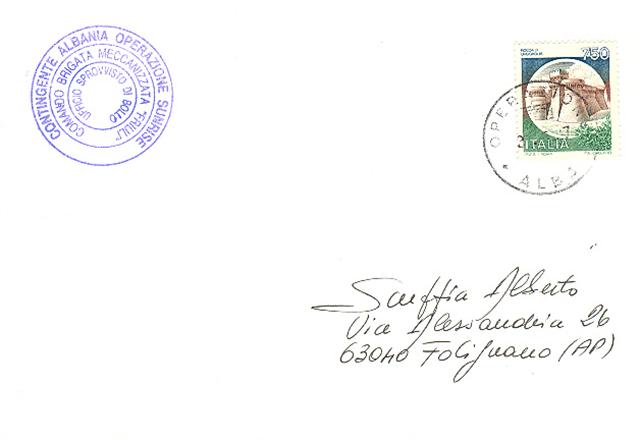 CONTINGENTE ALBANIA OPERAZIONE SUNRISE
COMANDO BRIGATA MECCANIZZATA "FRIULI"
UFFICIO SPROVVISTO DI BOLLO
ROCCA DI
750
ITALIA
Scuffia Alberto
Via Alessandria 26
63040 Folignano (AP)